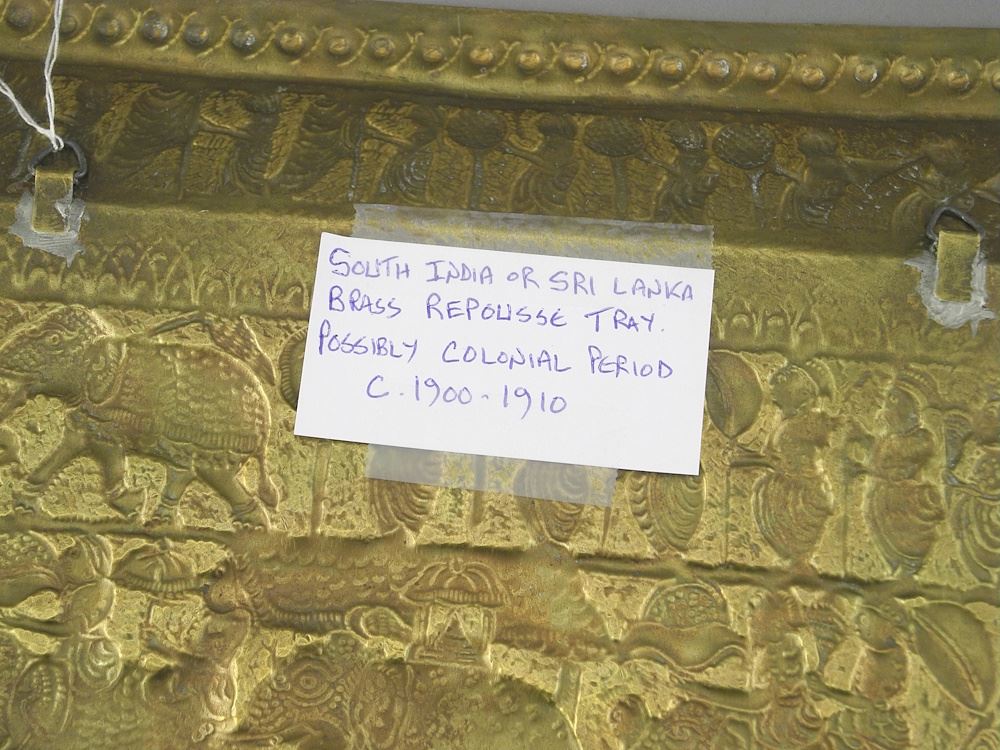 SOUTH INDIA OR SRI LANKA
BRASS REPOUSSE TRAY.
POSSIBLY COLONIAL PERIOD
C. 1900-1910